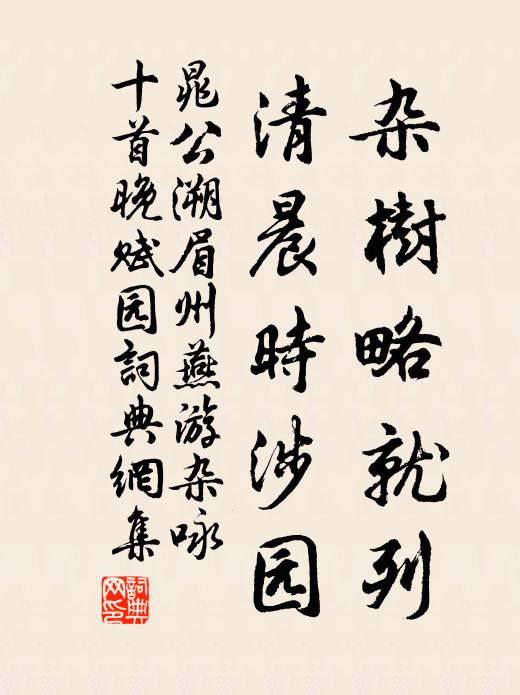 杂樹略就列
清晨時涉园
晁公溯眉州燕游杂咏
十首晚赋园詞典網集
詞典
网印